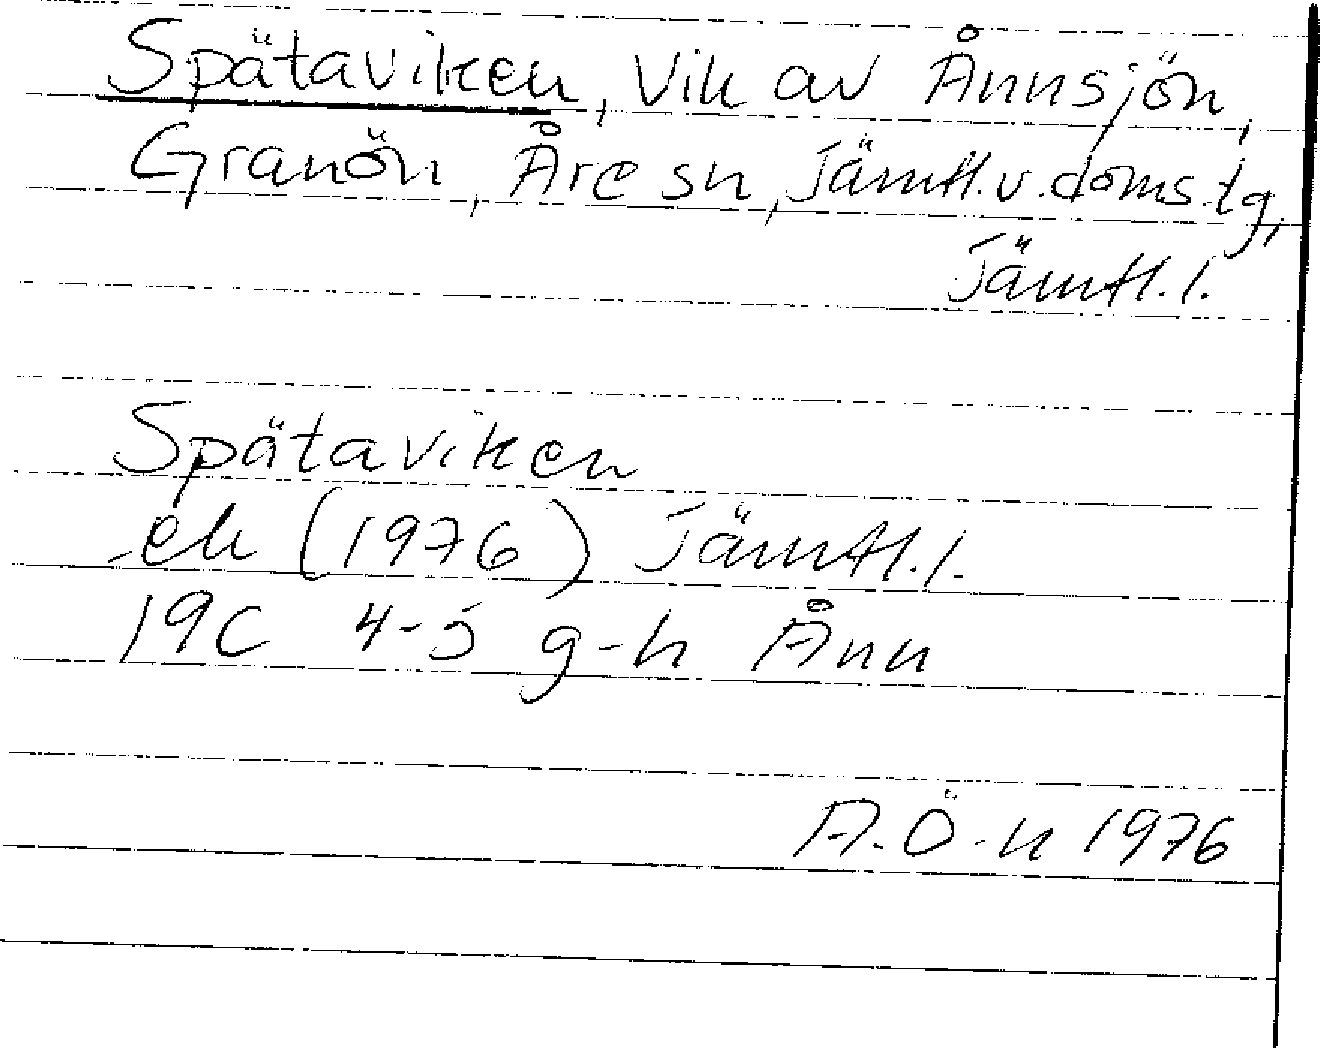 Spätaviken, vik av Ånnsjön,
Granön, Åre sn, Jämtl.v.doms.tg,
Jämtl.l.
Spätaviken
ek (1976) Jämtl.l.
19C 4-5 g-h Ånn
A.Ö-n 1976